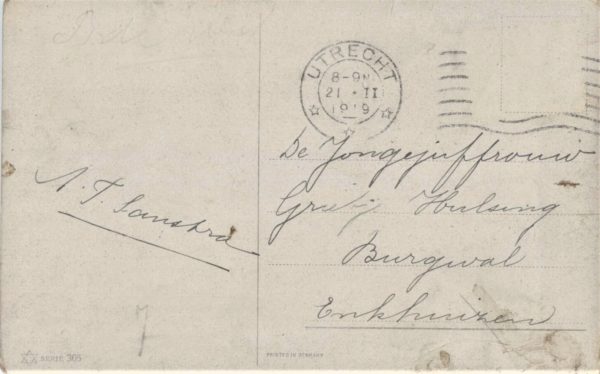 UTRECHT
8-9N.
21 • II
1919
De Jongejuffrouw
Grietje Hulsing
Burgwal
Enkhuizen
A. T.
SERIE 365
PRINTED IN GERMANY